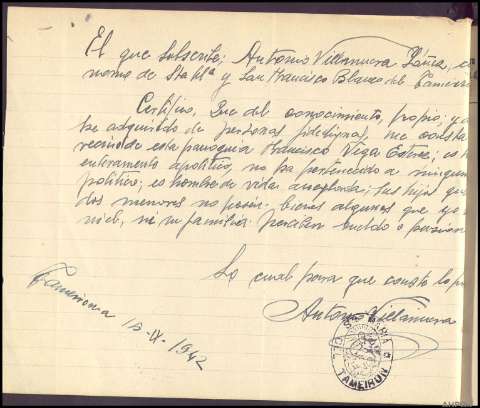 El que subscribe; Antonio Villanueva Yáñez,
nomo de Sta Mª y San Francisco Blanco del Tameirón
Certifico, Que del conocimiento, propio; y
he adquirido de personas fidedignas, me consta
vecino de esta parroquia Francisco Vega Esteve; es h
enteramente apolítico, no ha pertenecido a ningun
político; es hombre de vida arreglada; sus hijos que
dos menores no poseen bienes algunos que yo
ni el, ni su familia perciben sueldo o pension
Lo cual para que conste lo
Antonio Villanueva
Tameirón a 15-IX-1942
MARIA
DEL TAMEIRON